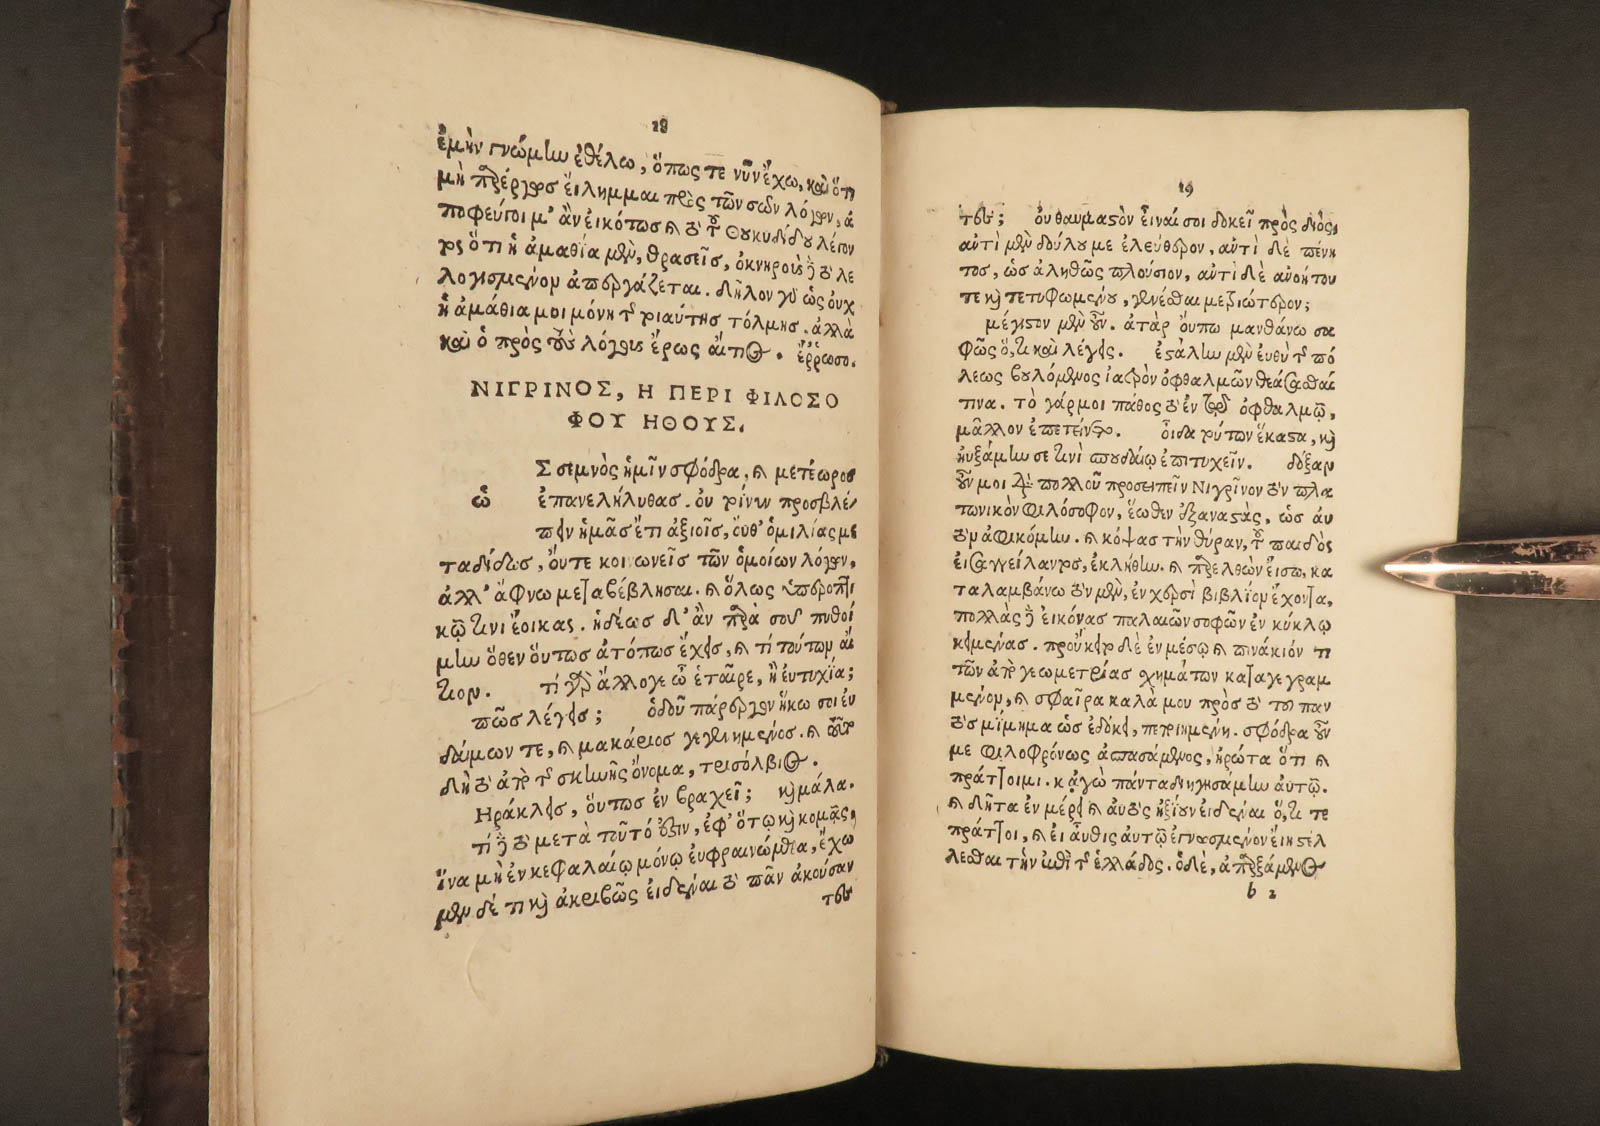 18
ἐμὴν γνώμην ἐθέλω, ὅπως τε νῦν ἔχω, καὶ ὅτι
μὴ παρέργως εἴλημμαι πρὸς τῶν σῶν λόγων, ἀ
ποφεύγοι μ' ἂν εἰκότως καὶ τὸ τοῦ Θουκυδίδου λέγον
τος ὅτι ἡ ἀμαθία μὲν, θρασεῖς, ὀκνηροὺς δὲ τὸ λε
λογισμένον ἀπεργάζεται. δῆλον γὰρ ὡς οὐχ
ἡ ἀμάθια μοι μόνη τῆς τοιαύτης τόλμης. ἀλλὰ
καὶ ὁ πρὸς τοὺς λόγους ἔρως αἴτιος. ἔῤῥωσο.
ΝΙΓΡΙΝΟΣ, Η ΠΕΡΙ ΦΙΛΟΣΟ
ΦΟΥ ΗΘΟΥΣ.
Σ σεμνὸς ἡμῖν σφόδρα, καὶ μετέωρος
ὡ ἐπανελήλυθας. οὐ τοίνυν προσβλέ
πειν ἡμᾶς ἔτι ἀξιοῖς, οὔθ' ὁμιλίας με
ταδίδως, οὔτε κοινωνεῖς τῶν ὁμοίων λόγων,
ἀλλ' ἄφνω μεταβέβλησαι. καὶ ὅλως ὑπεροπτι
κῷ τινι ἔοικας. ἡδέως δ' ἂν παρὰ σοῦ πυθοί
μην ὅθεν οὕτως ἀτόπως ἔχεις, καὶ τί τούτων αἴ
τιον. τί γὰρ ἄλλο γε ὦ ἑταῖρε, ἢ εὐτυχία;
πῶς λέγεις; ὁδοῦ πάρεργον ἥκω σοι εὐ
δαίμων τε, καὶ μακάριος γεγενημένος. καὶ τοῦτο
δὴ τὸ ἀπὸ τῆς σκηνῆς ὄνομα, τρισόλβιος.
Ηράκλεις, οὕτως ἐν βραχεῖ; καὶ μάλα.
τί δὲ τὸ μετὰ τοῦτό ἐστιν, ἐφ' ὅτῳ καὶ κομᾷς,
ἵνα μὴ ἐν κεφαλαίῳ μόνῳ εὐφραινώμεθα, ἔχω
μεν δέ τι καὶ ἀκριβῶς εἰδέναι τὸ πᾶν ἀκούσαν
τες
19
τες; οὐ θαυμαστὸν εἶναί σοι δοκεῖ πρὸς διὸς,
αὐτὶ μὲν δούλου με ἐλεύθερον, αὐτὶ δὲ πένη
τος, ὡς ἀληθῶς πλούσιον, αὐτὶ δὲ ἀνοήτου
τε καὶ τετυφωμένου, γενέσθαι μετριώτερον;
μέγιστον μὲν οὖν. ἀτὰρ οὔπω μανθάνω σα
φῶς ὅ,τι καὶ λέγεις. ἐστάλην μὲν εὐθὺ τῆς πό
λεως βουλόμενος ἰατρὸν ὀφθαλμῶν θεάσασθαί
τινα. τὸ γάρ μοι πάθος τὸ ἐν τῷ ὀφθαλμῷ,
μᾶλλον ἐπετείνετο. οἶδα τούτων ἕκαστα, καὶ
ηὐξάμην σε τινὶ σπουδαίῳ ἐπιτυχεῖν. δόξαν
οὖν μοι διὰ πολλοῦ προσειπεῖν Νιγρῖνον τὸν πλα
τωνικὸν φιλόσοφον, ἕωθεν ἐξαναστὰς, ὡς αὐ
τὸν ἀφικόμην. καὶ κόψας τὴν θύραν, τοῦ παιδὸς
εἰσαγγείλαντος, ἐκλήθην. καὶ παρελθὼν εἴσω, κα
ταλαμβάνω τὸν μὲν, ἐν χερσὶ βιβλίον ἔχοντα,
πολλὰς δὲ εἰκόνας παλαιῶν σοφῶν ἐν κύκλῳ
κειμένας. προὔκειτο δὲ ἐν μέσῳ καὶ πινάκιόν τι
τῶν ἀπὸ γεωμετρίας σχημάτων καταγεγραμ
μένον, καὶ σφαῖρα καλάμου πρὸς τὸ τοῦ παν
τὸς μίμημα ὡς ἐδόκει, πεποιημένη. σφόδρα οὖν
με φιλοφρόνως ἀσπασάμενος, ἠρώτα ὅτι καὶ
πράττοιμι. κἀγὼ πάντα διηγησάμην αὐτῷ.
καὶ δῆτα ἐν μέρει καὶ αὐτὸς ἠξίουν εἰδέναι ὅ,τι τε
πράττοι, καὶ εἰ αὖθις αὐτῷ ἐγνωσμένον εἴη στέλ
λεσθαι τὴν ἐπὶ τῆς ἑλλάδος. ὁ δὲ, ἀπαρξάμενος
b 2